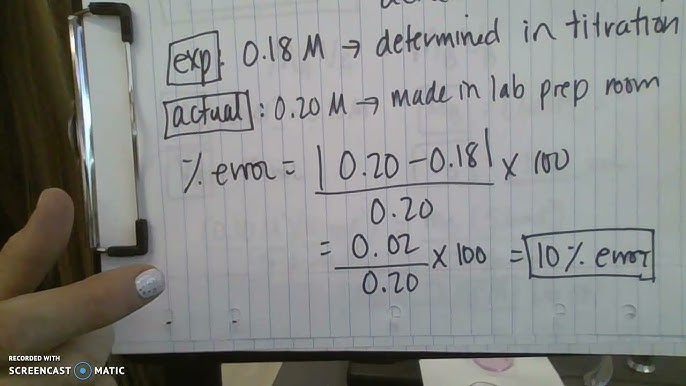 exp: 0.18 M → determined in titration
actual : 0.20 M → made in lab prep room
% error = | 0.20 - 0.18 | x 100
0.20
= 0.02 x 100 = 10% error
0.20
RECORDED WITH
SCREENCAST MATIC